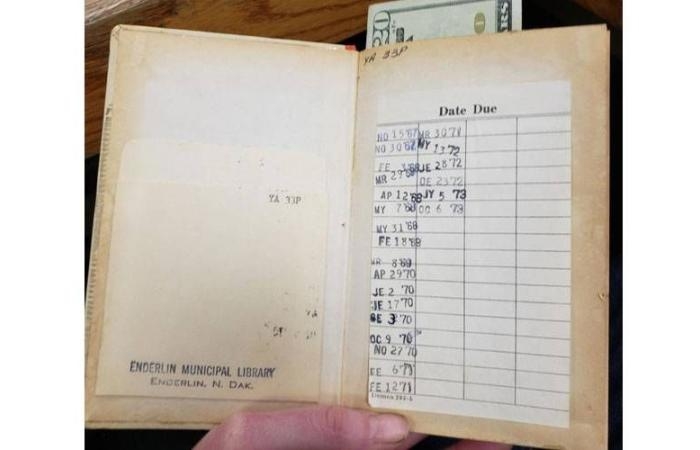 YA 33P
ENDERLIN MUNICIPAL LIBRARY
ENDERLIN, N. DAK.
20
YA 33P
Date Due
NO 15 '67 MR 30 71
NO 30 '67 MY 13 72
FE JE 28 72
MR 29 '68 DE 23 72
AP 12 '68 JY 5 73
MY 7 '68 OC 6 73
MY 31 '68
FE 18 '69
MR 8 '69
AP 29 70
JE 2 '70
JE 17 '70
3 '70
OC 9 '70
NO 27 70
6 '71
FE 12 '71